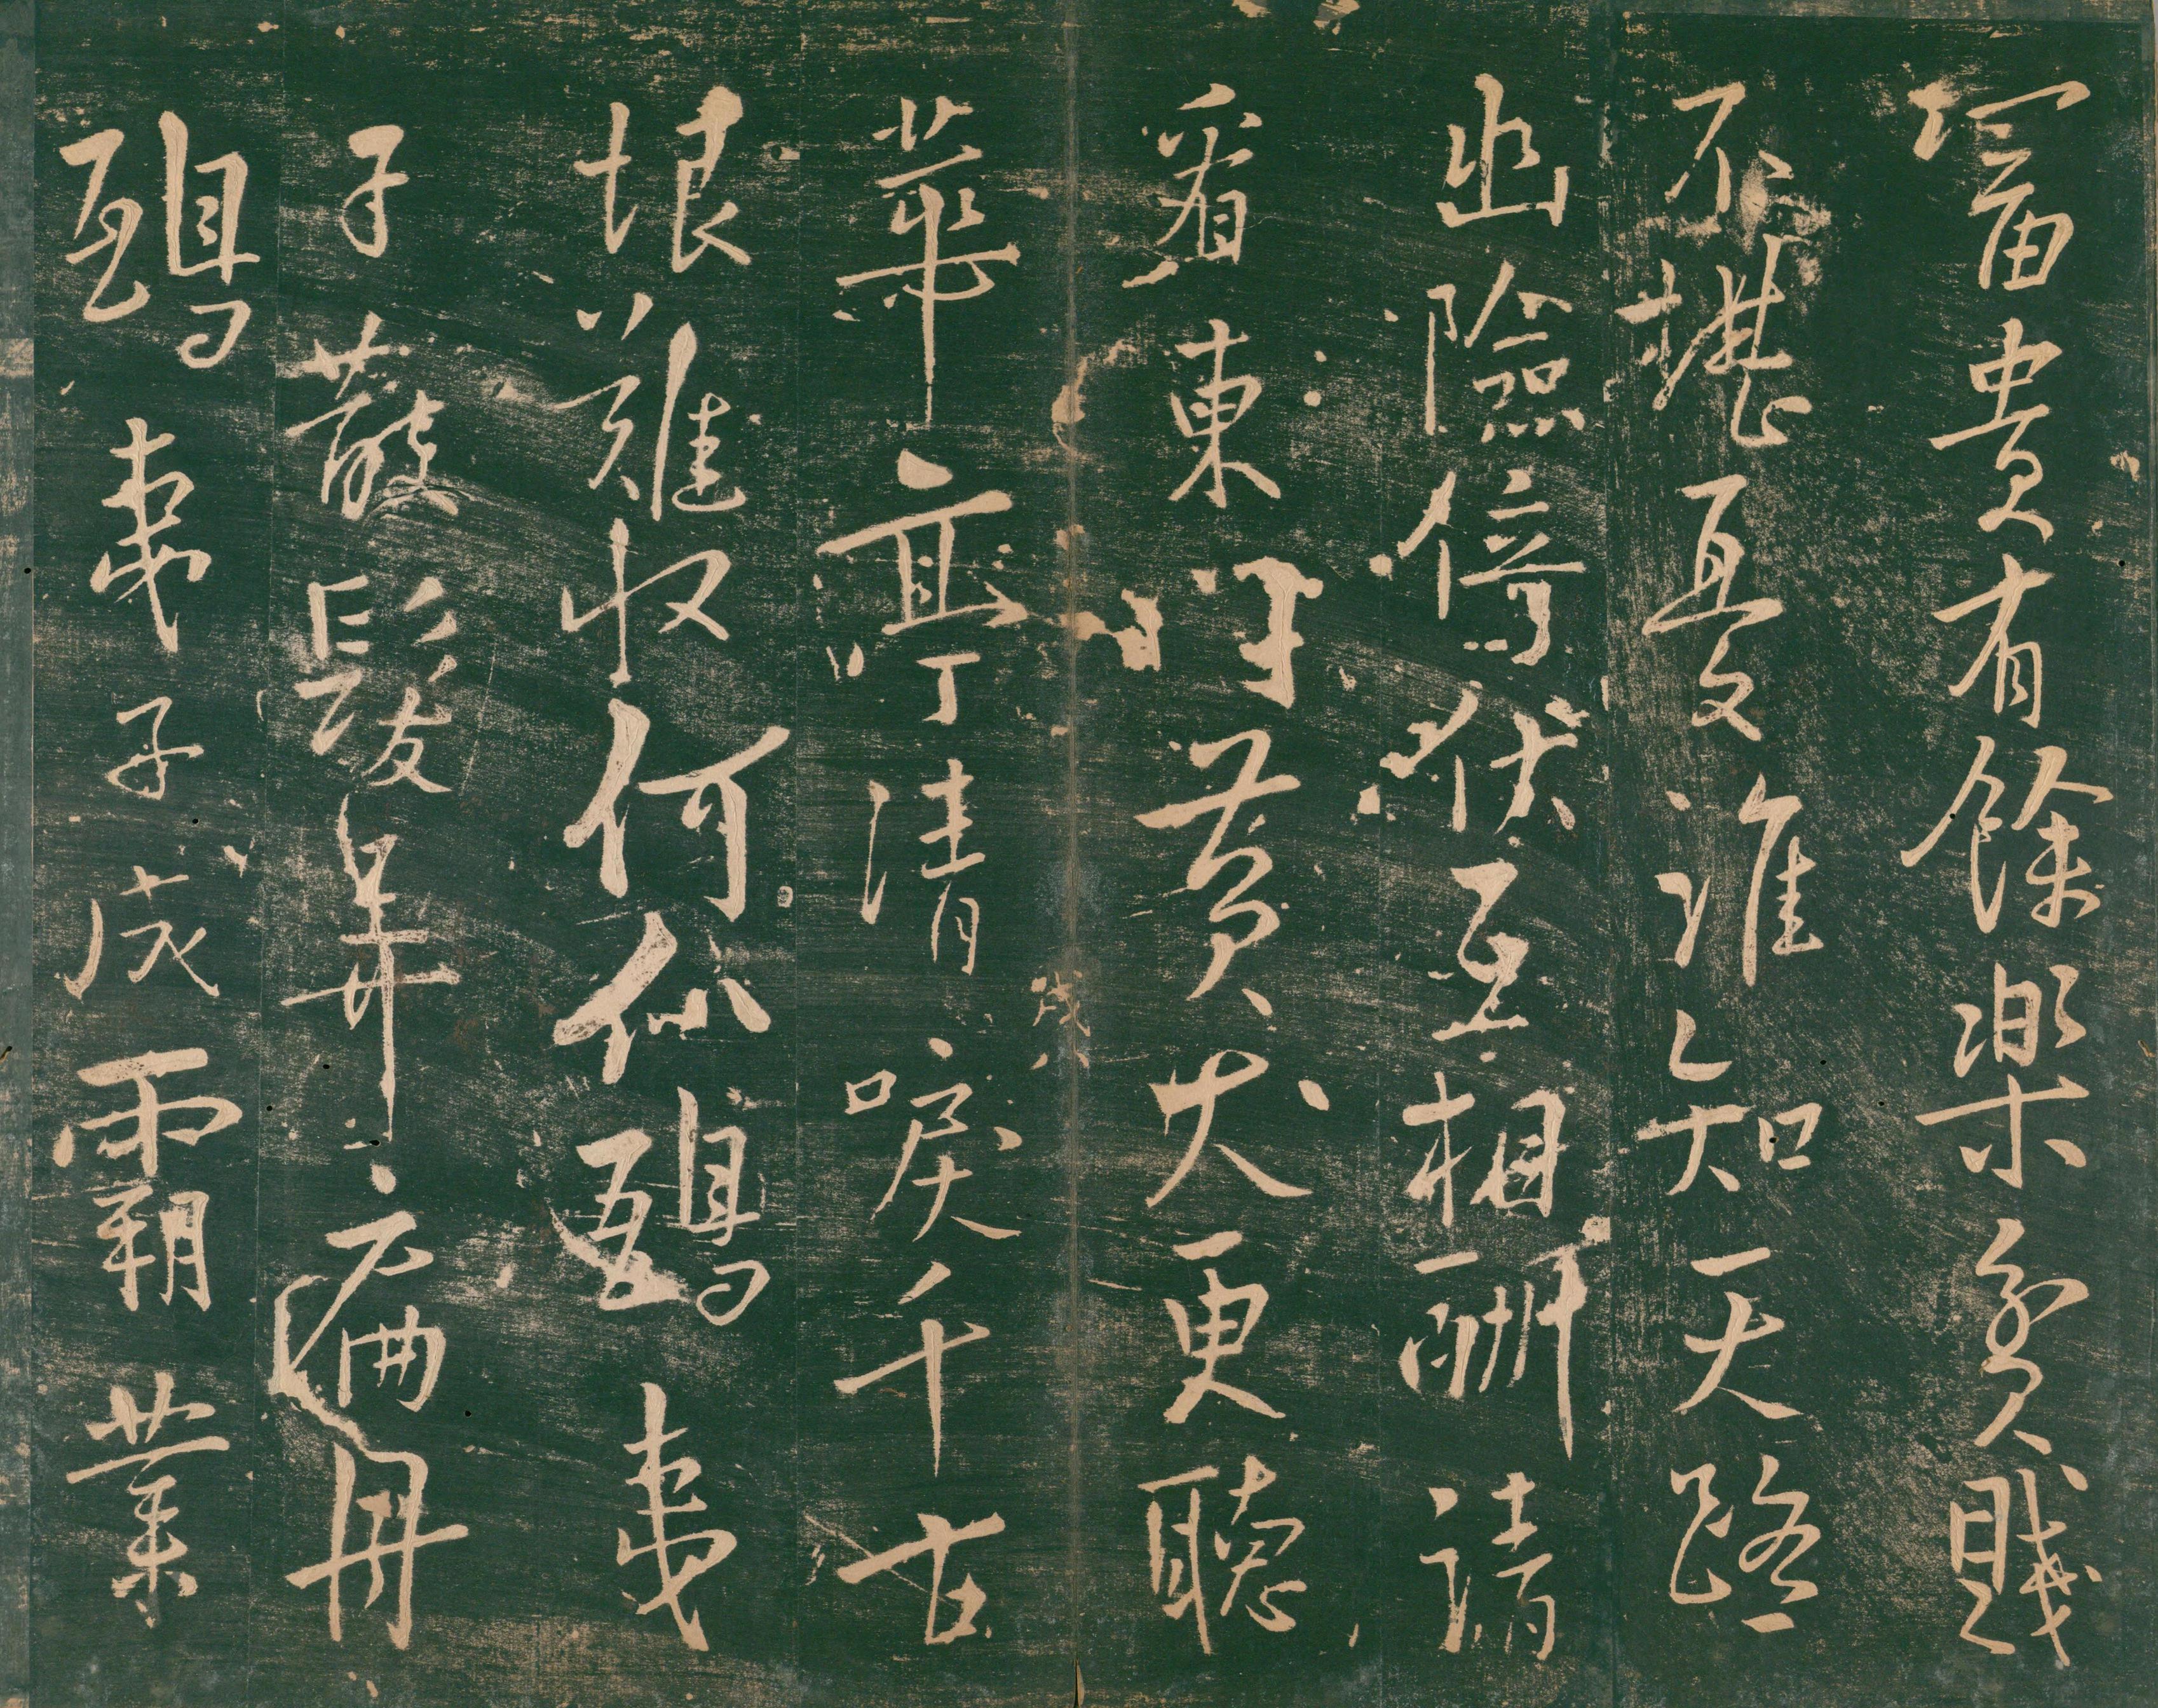 富貴有餘樂貧賤
不堪憂誰知天路
幽險倚伏互相酬請
看東門黃犬更聽
華亭清唳千古
恨難收何似鴟夷
子散髮弄扁舟
鴟夷子成霸業